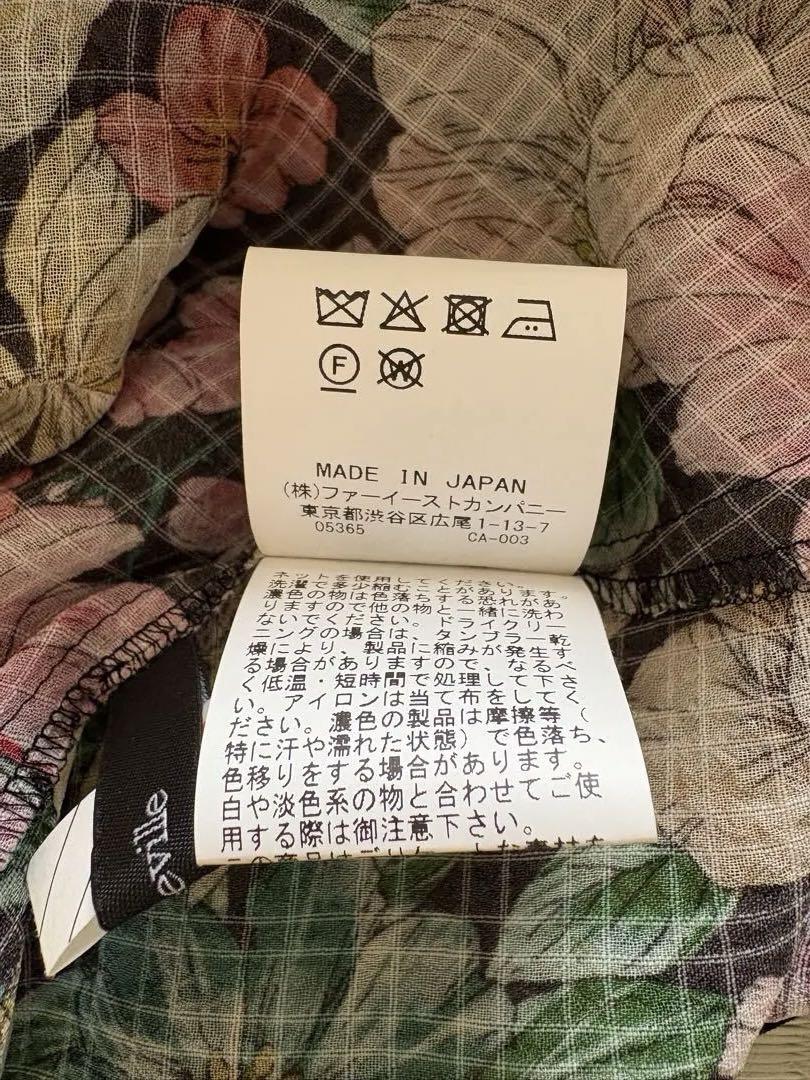 F
W
MADE IN JAPAN
(株)ファーイーストカンパニー
東京都渋谷区広尾1-13-7
05365 CA-003
ネットを使用してください。
洗濯で多少縮むことがあります。
濃色の物は色落ちする恐れがあ
りますので他の物と一緒に洗わ
ないでください。ドライクリー
ニングの場合は、タンブラー乾
燥により、製品に縮みが発生す
る場合がありますので、なるべ
く低温・短時間で処理して下さ
い。アイロンは当て布をしてく
ださい。濃色の製品は摩擦等（
特に汗や濡れた状態）で色落ち、
色移りをする場合があります。
白や淡色系の物と合わせてご使
用する際は御注意下さい。
この商品はデリケートな素材を
eville